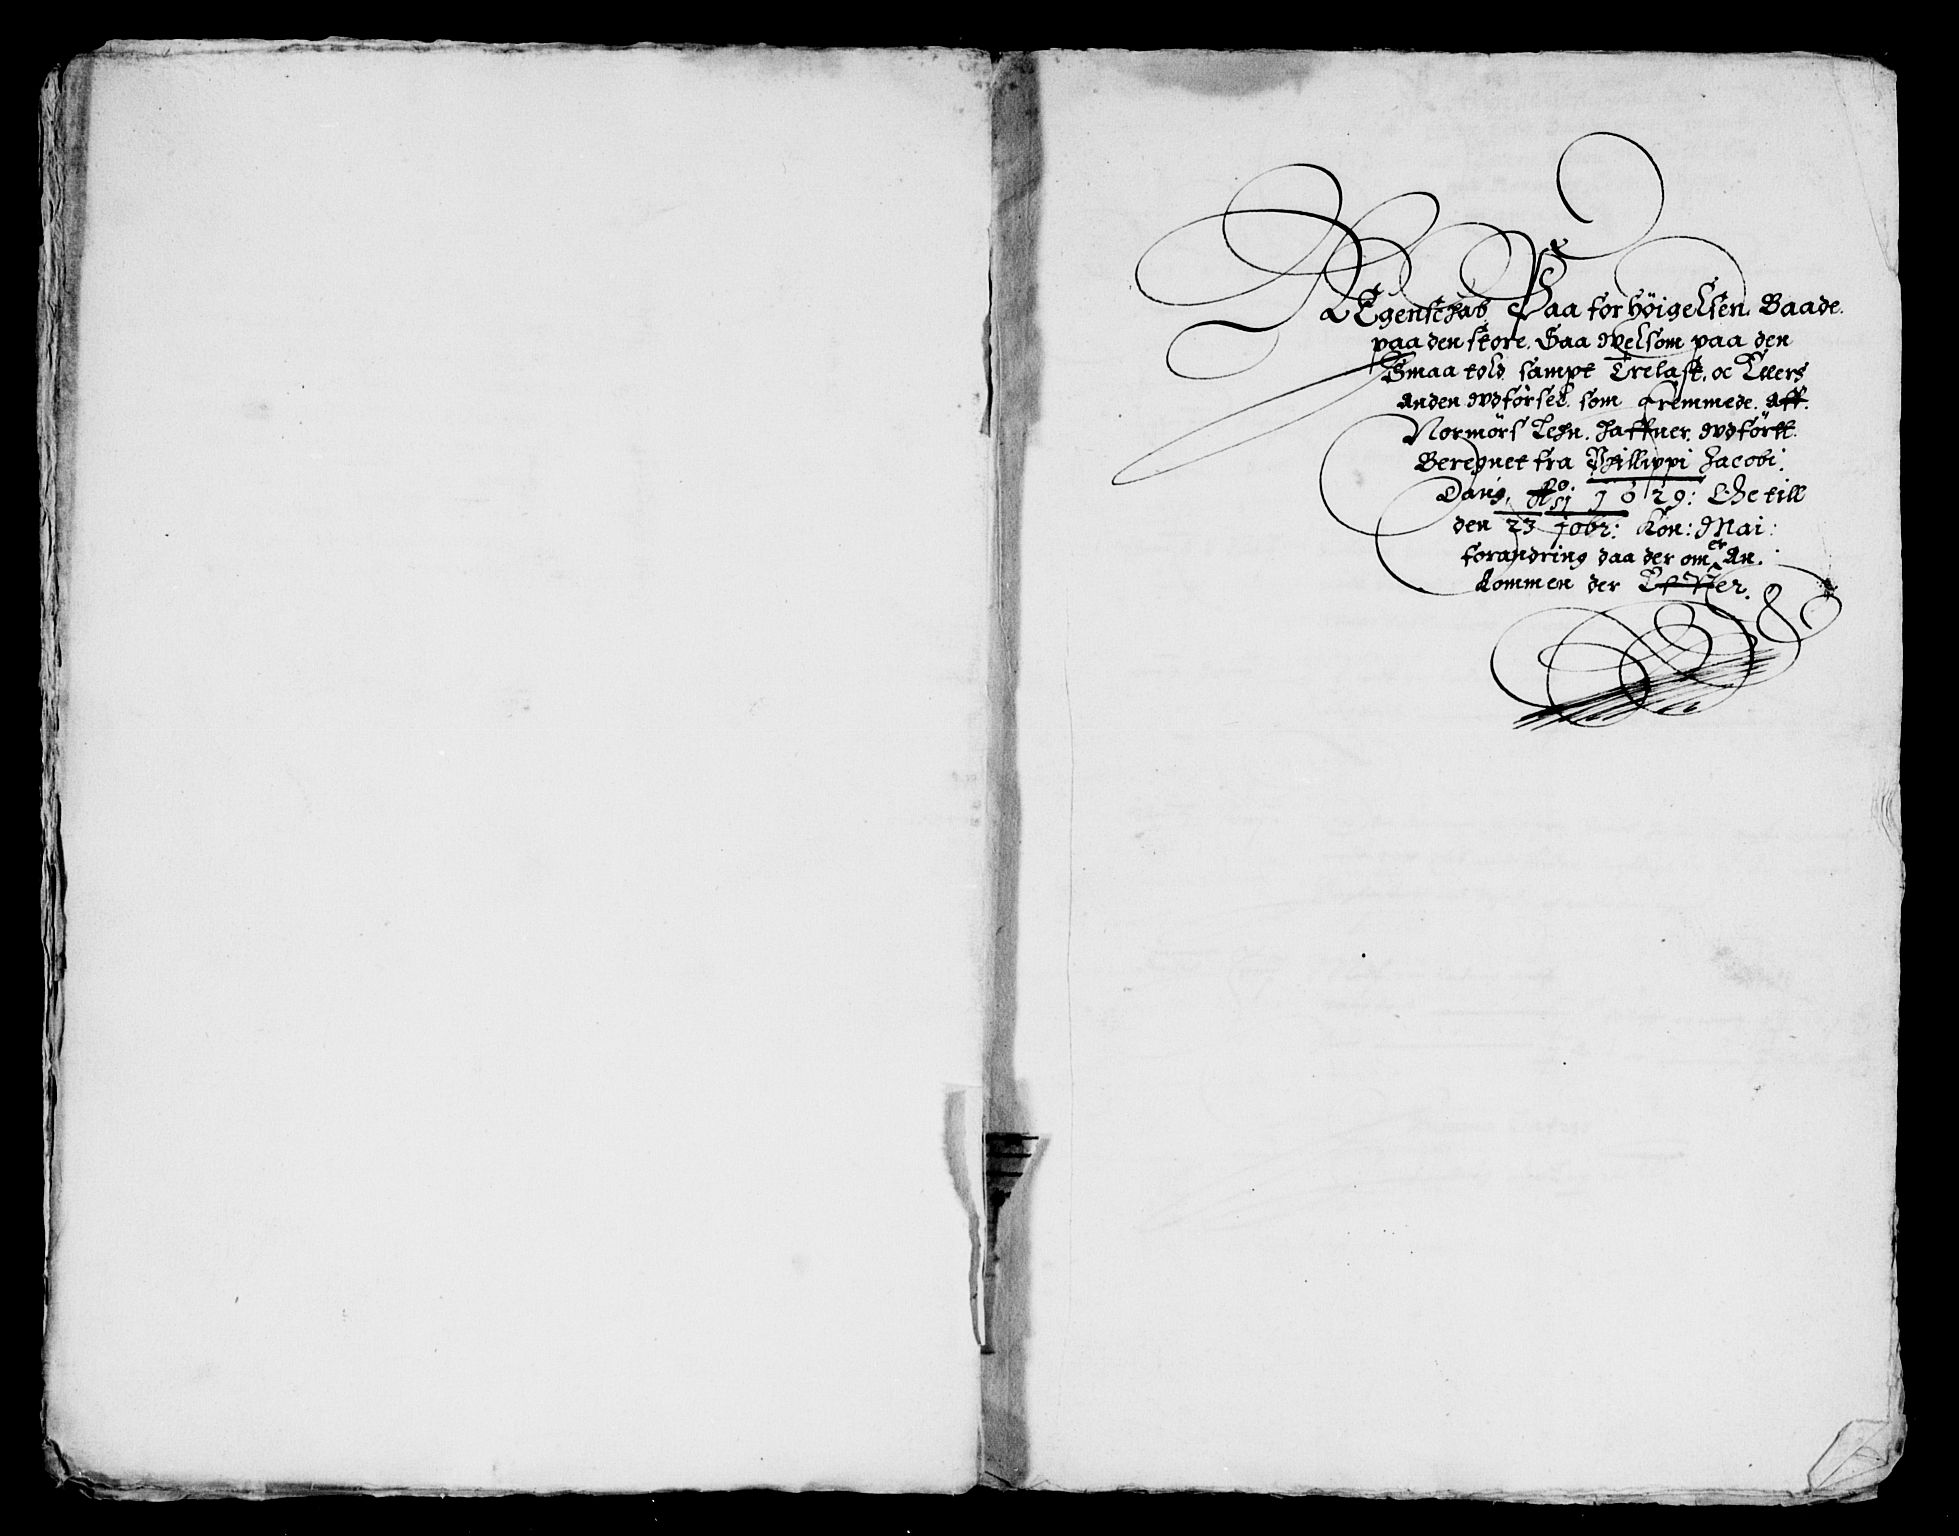 REgenschab Paa forhöigelsen. Baade.
paa den store. Saa welsom paa den
Smaa told sampt Trelast, oc Ellers
anden wdförsel som Fremmede. aff.
Normörs Lehn. haffner. wdförtt.
Beregnet fra Phillippi Jacobi.
Dang, Ao 1629: Oc till
den 23 Kon: Mai:
forandring daa der om er An.
kommen der Effter.